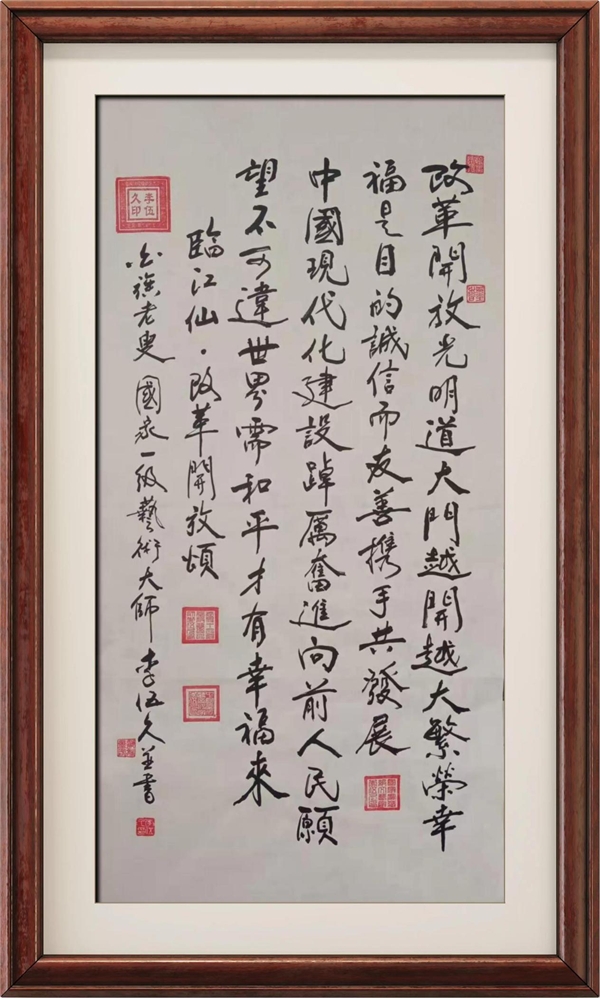 改革開放光明道大門越開越大繁榮幸
福是目的誠信而友善携手共發展
中國現代化建設踔厲奮進向前人民願
望不可違世界需和平才有幸福來
臨江仙·改革開放頌
李伍久印
白族老叟 國家一级藝術大師 李伍久並書